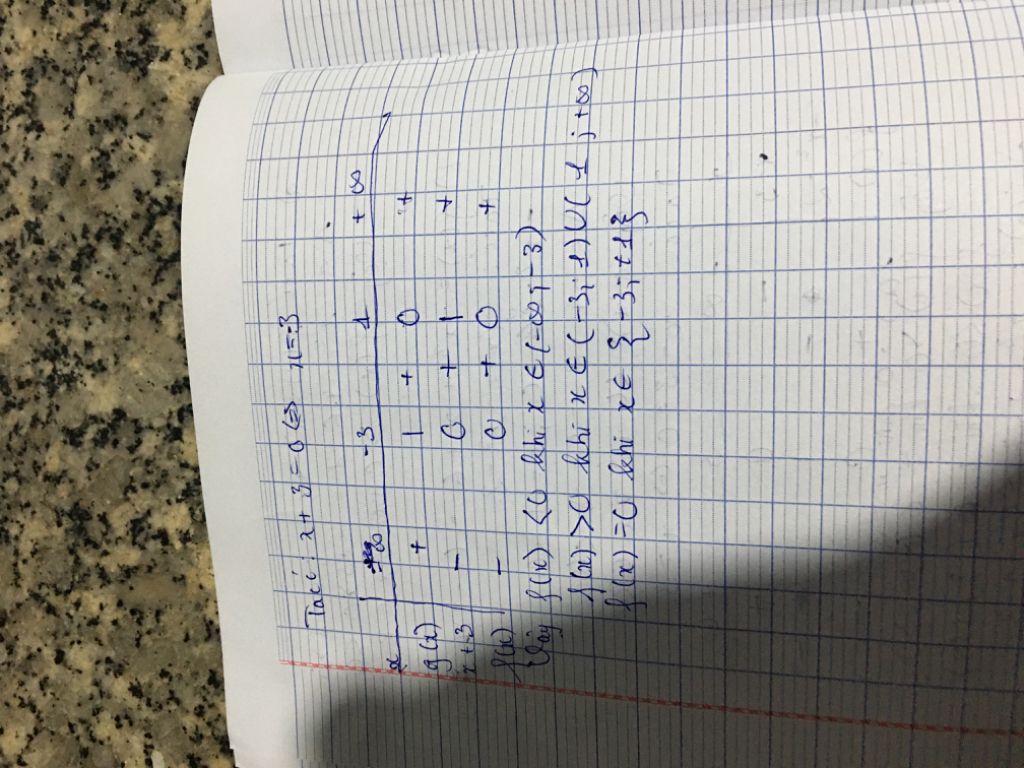 Ta có : x + 3 = 0 (=) x = -3
x -∞ -3 1 +∞
g(x) + | + 0 +
x + 3 - 0 + | +
f(x) - 0 + 0 +
Vậy f(x) < 0 khi x ∈ (-∞; -3)
f(x) > 0 khi x ∈ (-3; 1) ∪ (1; +∞)
f(x) = 0 khi x ∈ {-3; +1}